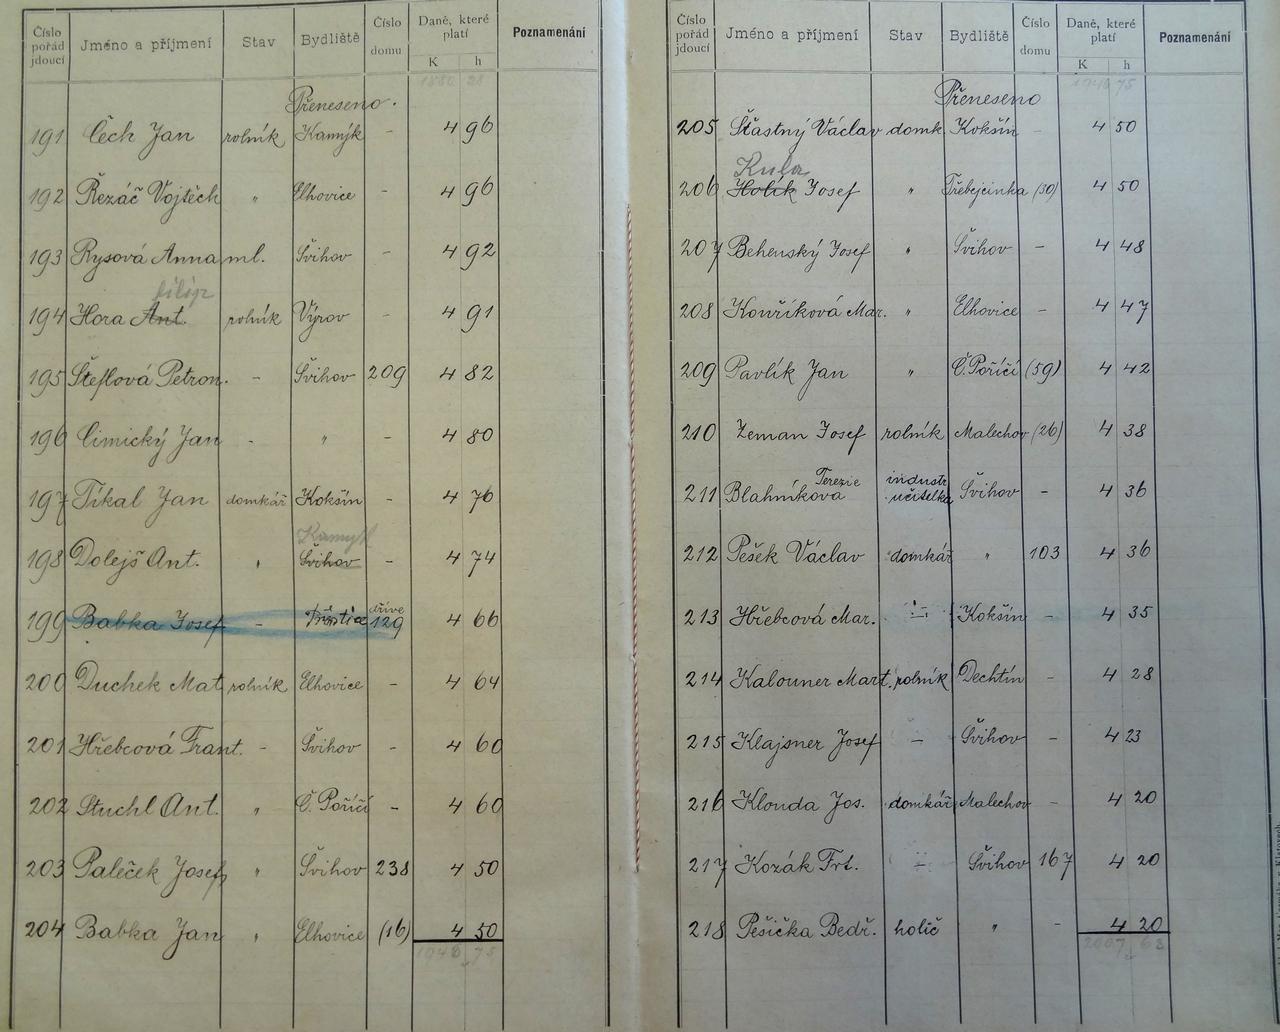 Číslo pořád jdoucí Jméno a příjmení Stav Bydliště Číslo domu Daně, které platí K h Poznamenání
1880 21
Přeneseno.
191 Čech Jan rolník Kamýk - 4 96
192 Řezáč Vojtěch " Elhovice - 4 96
193 Rysová Anna ml. Švihov - 4 92
filip
194 Hora Ant. rolník Výrov - 4 91
195 Šteflová Petron. - Švihov 209 4 82
196 Cimický Jan - " - 4 80
197 Tikal Jan domkář Kokšín - 4 76
Kamýk
198 Dolejš Ant. " Švihov - 4 74
dříve
199 Babka Josef - 129 4 66
200 Duchek Mat. rolník Elhovice - 4 64
201 Hřebcová Frant. - Švihov - 4 60
202 Stuchl Ant. " Č. Poříčí - 4 60
203 Paleček Josef " Švihov 238 4 50
204 Babka Jan " Elhovice (16) 4 50
1948 75
Číslo pořád jdoucí Jméno a příjmení Stav Bydliště Číslo domu Daně, které platí K h Poznamenání
1948 75
Přeneseno
205 Šťastný Václav domk. Kokšín - 4 50
Kula
206 Holík Josef " Třebejcinka (30) 4 50
207 Behenský Josef " Švihov - 4 48
208 Kouříková Mar. " Elhovice - 4 47
209 Pavlík Jan " Č. Poříčí (59) 4 42
210 Zeman Josef rolník Malechov (26) 4 38
Terezie industr.
211 Blahníková učitelka Švihov - 4 36
212 Pešek Václav domkář " 103 4 36
213 Hřebcová Mar. - Kokšín - 4 35
214 Kalouner Mart. rolník Dechtín - 4 28
215 Klajsner Josef - Švihov - 4 23
216 Klouda Jos. domkář Malechov - 4 20
217 Kozák Frt. - Švihov 167 4 20
218 Pešička Bedř. holič " - 4 20
2007 68